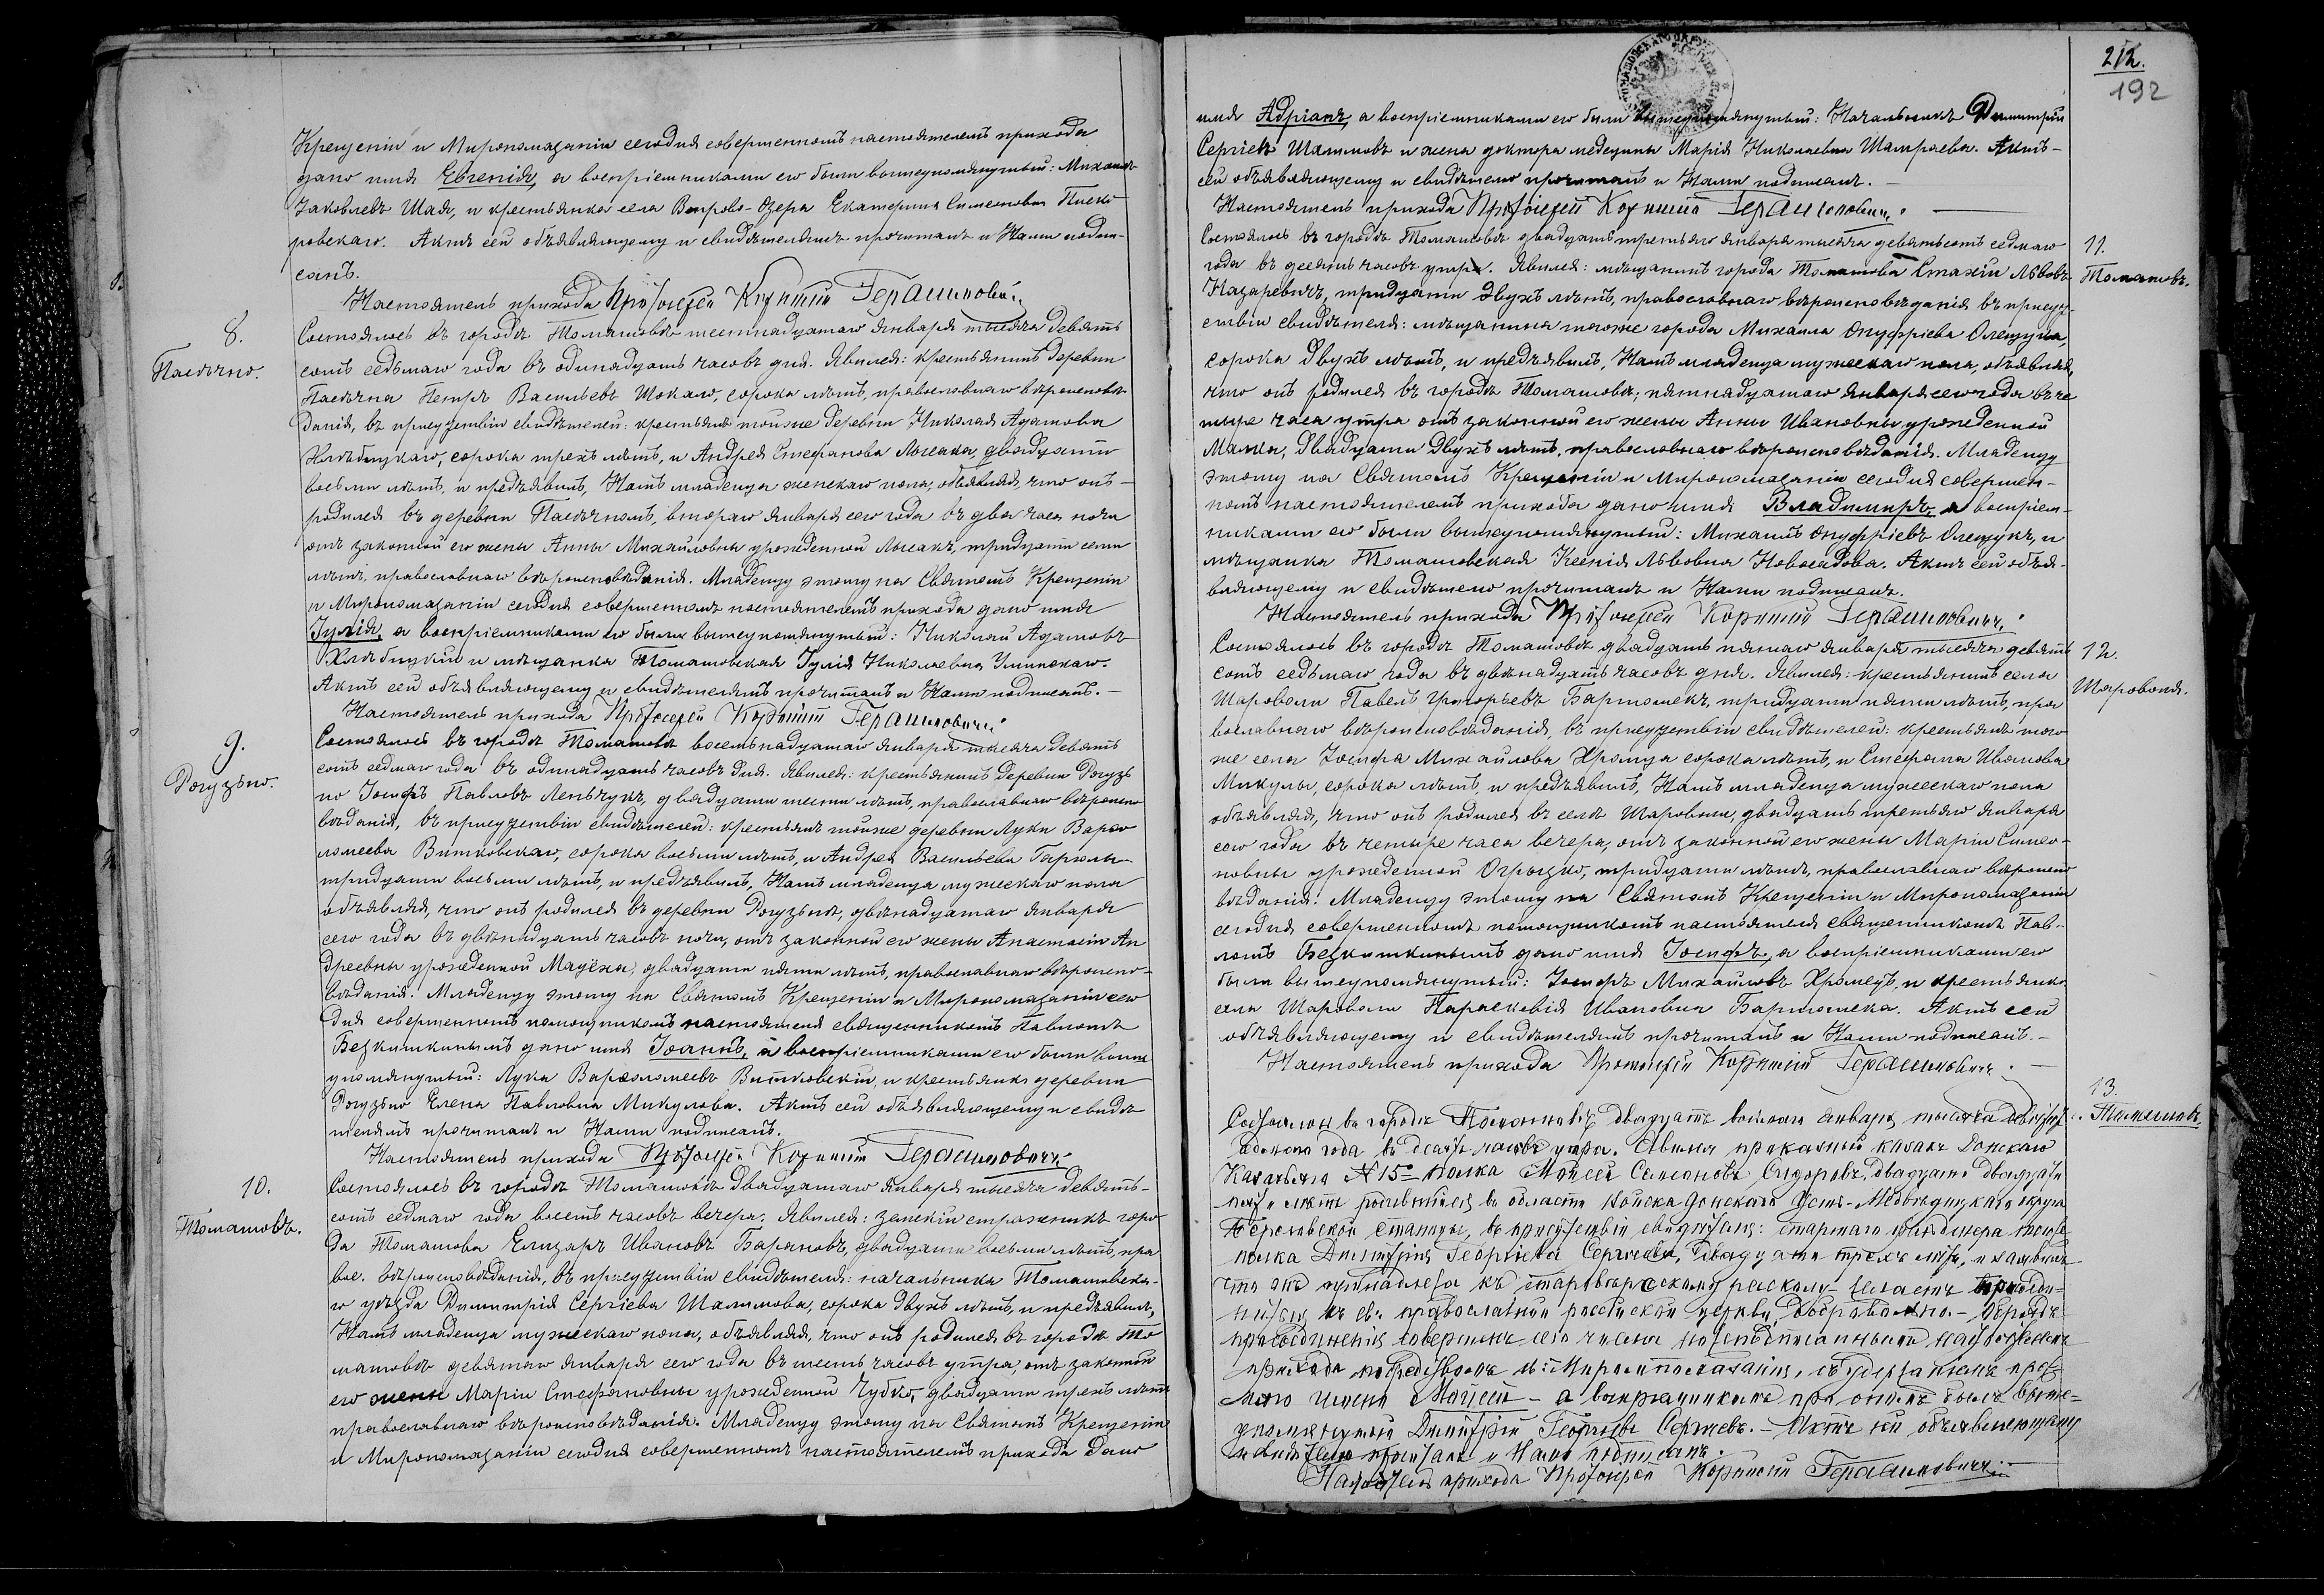 Крещеніи и Миропомазаніи сегодня совершенномъ настоятелемъ прихода
дано имя Евгенія, а воспріемниками его были вышеупомянутый: Михаилъ
Яковлевъ Шая, и крестьянка села Вепрово-Озера Екатерина Симеоновна Песко
ровскаго. Актъ сей объявляющему и свидѣтелямъ прочитанъ и Нами подпи-
санъ.
Настоятель прихода Протоіерей Корнилій Герашиновичъ.
8.
Пасѣчно.
Состоялось въ городѣ Томашовѣ шестнадцатаго января тысяча девять
сотъ седьмаго года въ одинадцать часовъ дня. Явился: крестьянинъ деревни
Пасѣчна Петръ Васильевъ Шокало, сорока лѣтъ, православнаго вѣроисповѣ-
данія, въ присутствіи свидѣтелей: крестьянъ той же деревни Николая Адамова
Хлѣбицкаго, сорока трехъ лѣтъ, и Андрея Стефанова Лысака, двадцати
восьми лѣтъ, и предъявилъ Намъ младенца женскаго пола, объявляя, что онъ
родился въ деревни Пасѣчномъ, втораго января сего года въ два часа ночи
отъ законной его жены Анны Михайловны урожденной Лысакъ, тридцати семи
лѣтъ, православнаго вѣроисповѣданія. Младенцу этому на Святомъ Крещеніи
и Миропомазаніи сегодня совершенномъ настоятелемъ прихода дано имя
Іулія, а воспріемниками его были вышеупомянутый: Николай Адамовъ
Хлѣбицкій и мѣщанка Томашовская Іулія Николаевна
Актъ сей объявляющему и свидѣтелямъ прочитанъ и Нами подписанъ.—
Настоятель прихода Протоіерей Корнилій Герашиновичъ.
9.
Рогузьно.
Состоялось въ городѣ Томашовѣ восемьнадцатаго января тысяча девять
сотъ седмаго года въ одинадцать часовъ дня. Явился: крестьянинъ деревни Рогузь
но Іосифъ Павловъ Леньчукъ, двадцати шести лѣтъ, православнаго вѣроиспо
вѣданія, въ присутствіи свидѣтелей: крестьянъ той же деревни Луки Варѳо
ломеева Витковскаго, сорока восьми лѣтъ, и Андрея Васильева
тридцати восьми лѣтъ, и предъявилъ Намъ младенца мужескаго пола
объявляя, что онъ родился въ деревни Рогузьнѣ, двѣнадцатаго января
сего года въ двѣнадцать часовъ ночи, отъ законной его жены Анастасіи Ан
дреевны урожденной Мацёха, двадцати пяти лѣтъ, православнаго вѣроиспо-
вѣданія. Младенцу этому на Святомъ Крещеніи и Миропомазаніи сего
дня совершенномъ помощникомъ настоятеля священникомъ Павломъ
Безкишкинымъ дано имя Іоаннъ, а воспріемниками его были выше
упомянутый: Лука Варѳоломеевъ Витковскій, и крестьянка деревни
Рогузьно Елена Павловна Микулова. Актъ сей объявляющему и свидѣ
телямъ прочитанъ и Нами подписанъ.
Настоятель прихода Протоіерей Корнилій Герашиновичъ.
10.
Томашовъ.
Состоялось въ городѣ Томашовѣ двадцатаго января тысяча девять-
сотъ седмаго года восемь часовъ вечера. Явился: земскій стражникъ горо
да Томашова Елизаръ Ивановъ Барановъ, двадцати восьми лѣтъ, пра
вос. вѣроисповѣданія, въ присутствіи свидѣтеля: начальника Томашовска-
го уѣзда Димитрія Сергіева Шалимова, сорока двухъ лѣтъ, и предъявилъ
Намъ младенца мужескаго пола, объявляя, что онъ родился въ городѣ То
машовѣ девятаго января сего года въ шесть часовъ утра, отъ законной
его жены Маріи Стефановны урожденной Чубко, двадцати трехъ лѣтъ
православнаго вѣроисповѣданія. Младенцу этому на Святомъ Крещеніи
и Миропомазаніи сегодня совершенномъ настоятелемъ прихода дано
212.
192
имя Адріанъ, а воспріемниками его были вышеупомянутый: Начальникъ Димитрій
Сергіевъ Шалимовъ и жена доктора медецины Марія Николаевна Шамраева. Актъ-
сей объявляющему и свидѣтелю прочитанъ и Нами подписанъ.—
Настоятель прихода Протоіерей Корнилій Герашиновичъ.
11.
Томашовъ.
Состоялось въ городѣ Томашовѣ двадцать третьяго января тысяча девятьсотъ седмаго
года въ десять часовъ утра. Явился: мѣщанинъ города Томашова Стахій Львовъ
Назаревичъ, тридцати двухъ лѣтъ, православнаго вѣроисповѣданія въ присут-
ствіи свидѣтеля: мѣщанина того же города Михаила Онуфріева Олещука,
сорока двухъ лѣтъ, и предъявилъ, Намъ младенца мужескаго пола, объявляя,
что онъ родился въ городѣ Томашовѣ, пятнадцатаго января сего года въ че
тыре часа утра отъ законной его жены Анны Ивановны урожденной
Малка, двадцати двухъ лѣтъ, православнаго вѣроисповѣданія. Младенцу
этому на Святомъ Крещеніи и Миропомазаніи сегодня совершен-
номъ настоятелемъ прихода дано имя Владимиръ, а воспріем-
никами его были вышеупомянутый: Михаилъ Онуфріевъ Олещукъ, и
мѣщанка Томашовская Ксенія Львовна Новосадова. Актъ сей объя-
вляющему и свидѣтелю прочитанъ и Нами подписанъ.
Настоятель прихода Протоіерей Корнилій Герашиновичъ.
12.
Шароволя.
Состоялось въ городѣ Томашовѣ двадцать пятаго января тысяча девять
сотъ седьмаго года въ двѣнадцать часовъ дня. Явился: крестьянинъ села
Шароволи Павелъ Григорьевъ Бартошекъ, тридцати пяти лѣтъ, пра
вославнаго вѣроисповѣданія, въ присутствіи свидѣтелей: крестьянъ того
же села Іосифа Михайлова Хромца сорока лѣтъ, и Стефана Иванова
Микулы, сорока лѣтъ, и предъявилъ, Намъ младенца мужескаго пола
объявляя, что онъ родился въ селѣ Шаровли, двадцать третьяго января
сего года въ четыре часа вечера, отъ законной его жены Маріи Симео-
новны урожденной Огрызко, тридцати лѣтъ, православнаго вѣроиспо
вѣданія. Младенцу этому на Святомъ Крещеніи и Миропомазаніи
сегодня совершенномъ помощникомъ настоятеля священникомъ Пав-
ломъ Безкишкинымъ дано имя Іосифъ, а воспріемниками его
были вышеупомянутый: Іосифъ Михайловъ Хромецъ, и крестьянка
села Шароволи Параскевія Ивановна Бартошека. Актъ сей
объявляющему и свидѣтелямъ прочитанъ и Нами подписанъ.—
Настоятель прихода Протоіерей Корнилій Герашиновичъ.
13.
Томашовъ.
Состоялось въ городѣ Томашовѣ двадцать восьмого января тысяча девятьсотъ
седьмого года въ десять часовъ утра. Явился приказный казакъ Донского
Казачьяго № 15го полка Моисей Семеоновъ Сидоровъ, двадцати
пяти лѣтъ родившійся въ области войска Донского Усть-Медвѣдицкаго округа
станицы, въ присутствіи свидѣтеля: старшаго того же
полка Димитрія Георгіева Сергѣева, двадцати трехъ лѣтъ, и заявилъ
что онъ принадлежа къ старообрядческому расколу желаетъ присоеди-
ниться къ св. православной россійской церкви, добровольно.— Обрядъ
присоединенія совершенъ сего числа нижеподписавшимся настоятелемъ
прихода посредствомъ св. Миропомазанія, съ удержаніемъ преж-
няго имени Моисей — а воспріемникомъ при ономъ былъ выше-
упомянутый Димитрій Георгіевъ Сергѣевъ.— Актъ сей объявляющему
и свидѣтелю прочитанъ и Нами подписанъ.
Настоятель прихода Протоіерей Корнилій Герашиновичъ.